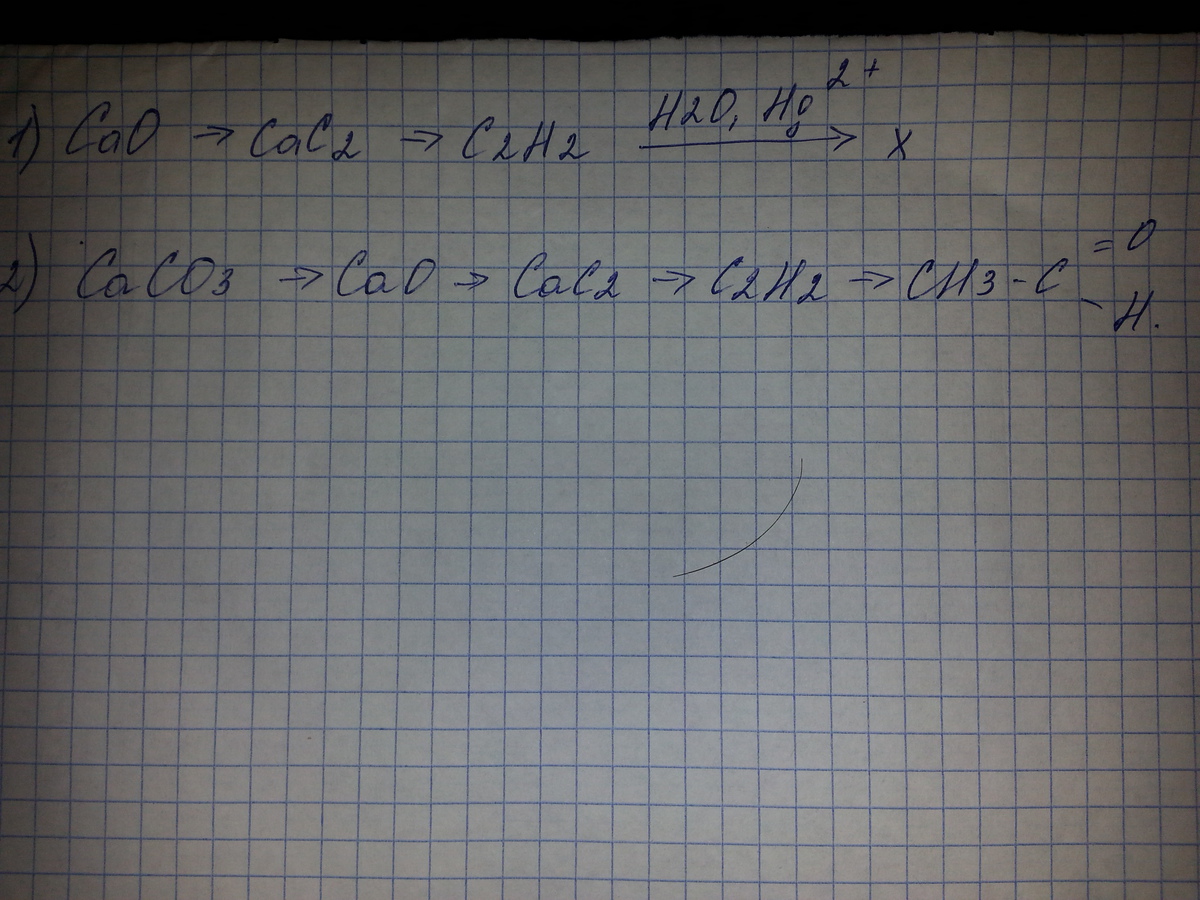 1) CaO → CaC2 → C2H2 H2O, Hg 2+ → X
2) CaCO3 → CaO → CaC2 → C2H2 → CH3 - C = O - H.